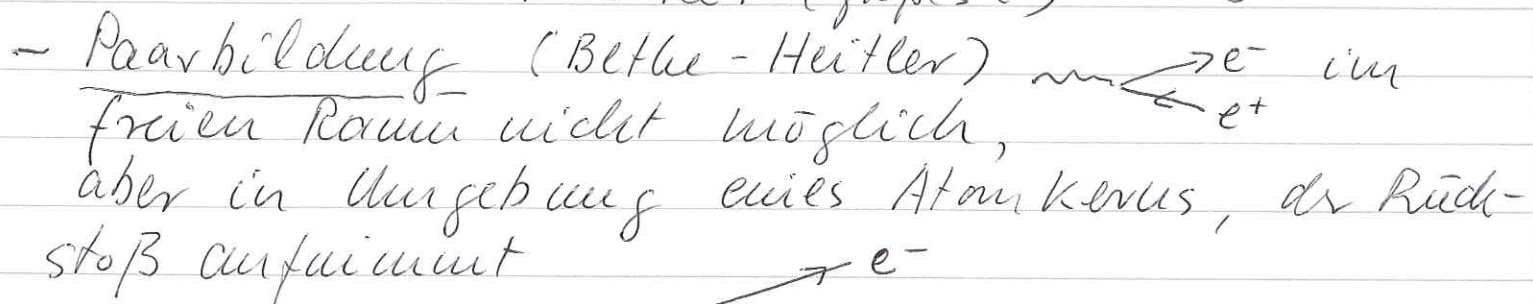 - Paarbildung (Bethe-Heitler) e⁻ im
e⁺
freien Raum nicht möglich,
aber in Umgebung eines Atomkerns, der Rück-
stoß aufnimmt
e⁻